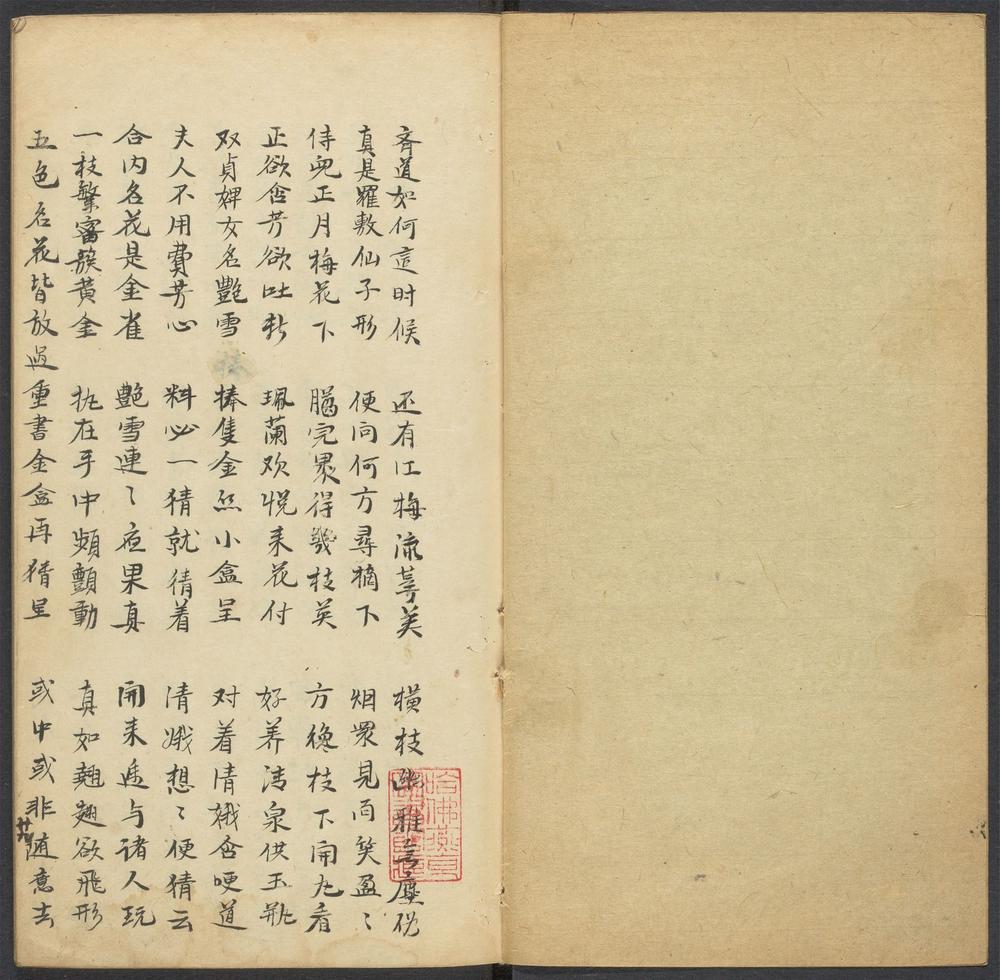 齐道如何這时候 还有江梅流等美 横枝幽雅音塵俗
真是羅敷仙子形 便向何方尋摘下 烟眾見面笑盈〻
侍児正月梅花下 腦完累得幾枝英 方纔枝下開九看
正欲含芳欲吐新 珮蘭欢悦来花付 好养清泉供玉瓶
双貞婢女名艷雪 捧隻金絲小盒呈 对着清娥含哽道
夫人不用費芳心 料必一猜就猜着 清娥想〻便猜云
合内名花是金雀 艷雪連〻夜果真 開来递与诸人玩
一枝繁密簇黄金 执在手中頻顫動 真如翹翹欲飛形
五色名花皆放過 重書金盒再猜呈 或中或非随意去
哈佛燕京